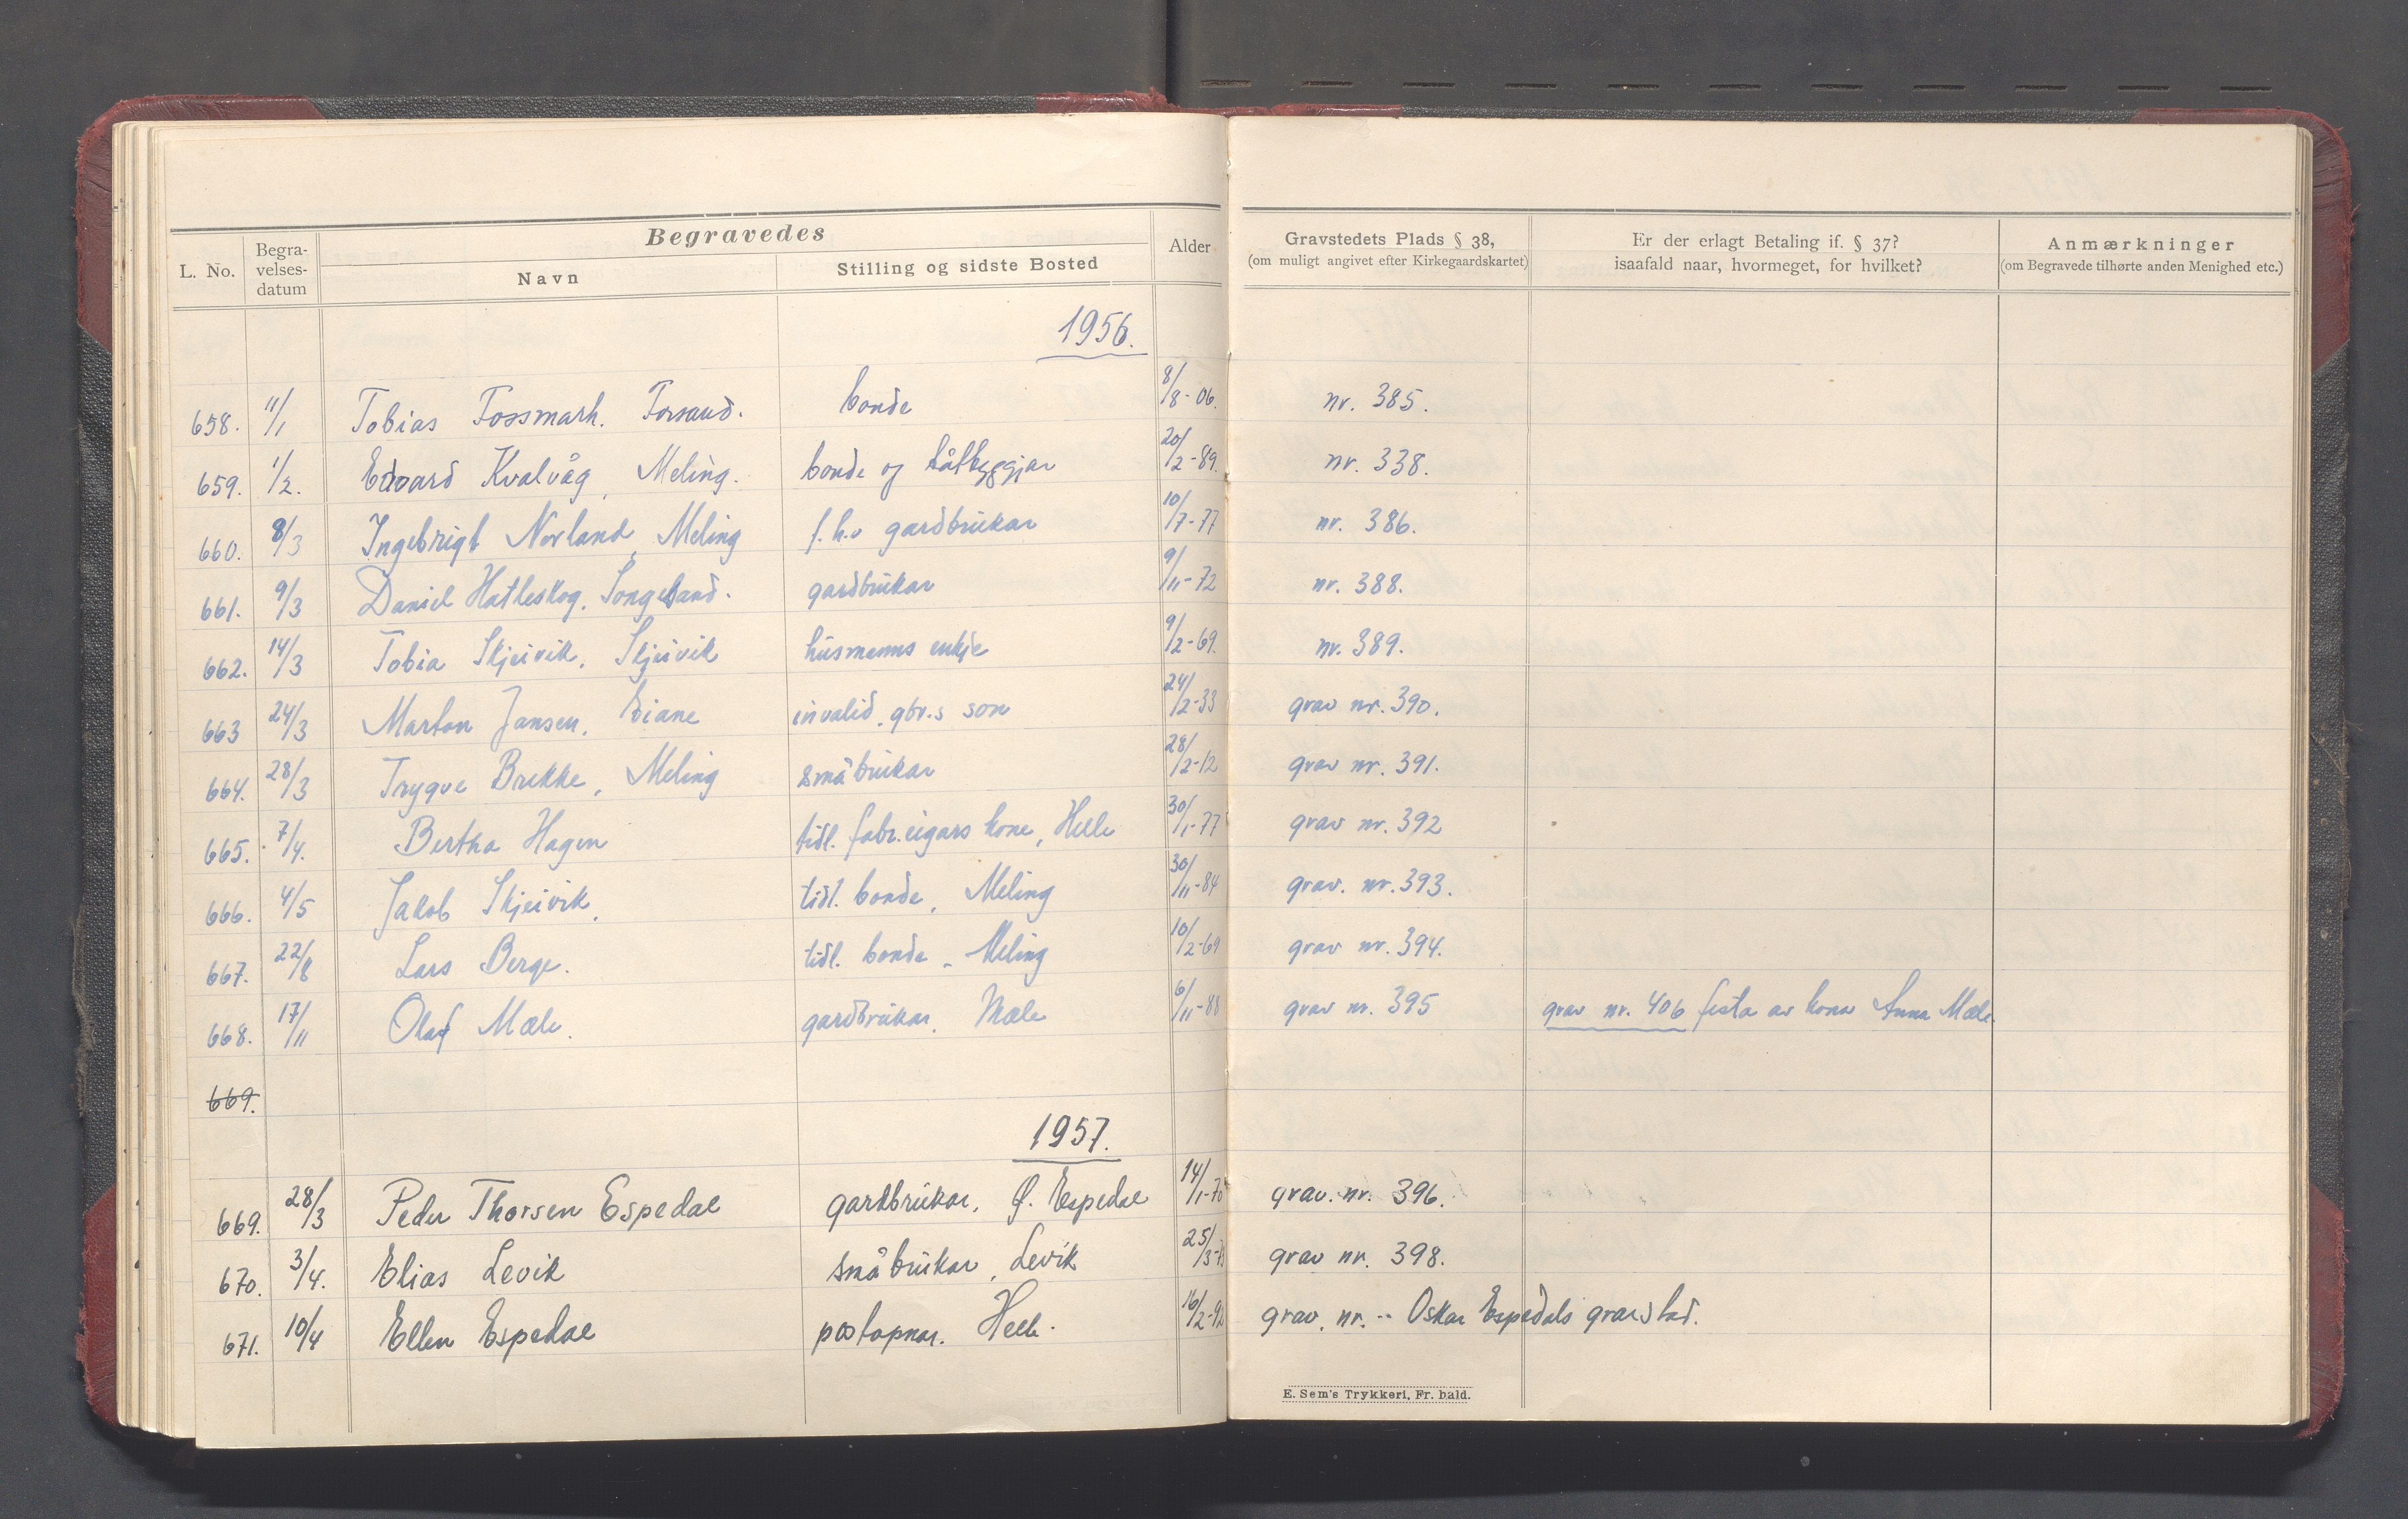 Begravedes
L. No. Begra-velses-datum Navn Stilling og sidste Bosted Alder Gravstedets Plads § 38, (om muligt angivet efter Kirkegaardskartet) Er der erlagt Betaling if. § 37? isaafald naar, hvormeget, for hvilket? Anmærkninger (om Begravede tilhørte anden Menighed etc.)
1956.
658. 11/1 Tobias Fossmark. Forsand. bonde 8/8-06. nr. 385.
659. 1/2. Edvard Kvalvåg, Meling. bonde og båtbyggjar 20/2-89. nr. 338.
660. 8/3 Ingebrigt Norland, Meling f.h.v gardbrukar 10/7-77 nr. 386.
661. 9/3 Daniel Hatleskog. Songesand. gardbrukar 9/11-72 nr. 388.
662. 14/3 Tobia Skjeivik, Skjeivik husmanns enkje 9/2-69. nr. 389.
663 24/3 Marton Jansen, Eiane invalid, gbr.s son 24/2-33 grav nr. 390.
664. 28/3 Trygve Brekke, Meling småbrukar 28/2-12 grav nr. 391.
665. 7/4. Bertha Hagen tidl. fabr.eigars kone, Helle 30/1-77 grav nr. 392
666. 4/5 Jakob Skjeivik, tidl. bonde, Meling 30/11-84 grav. nr. 393.
667. 22/8 Lars Berge. tidl. bonde - Meling 10/2-69 grav nr. 394.
668. 17/11 Olaf Mæle. gardbrukar, Mæle 6/11-88 grav nr. 395 grav nr. 406 festa av kona Anna Mæle.
669.
1957.
669. 28/3 Peder Thorsen Espedal gardbrukar, Ø. Espedal 14/1-70 grav. nr. 396.
670. 3/4. Elias Levik småbrukar, Levik 25/3- grav nr. 398.
671. 10/4 Ellen Espedal postopnar. Helle. 16/2-92 grav. nr. -- Oskar Espedals gravstad.
E. Sem's Trykkeri, Fr. hald.